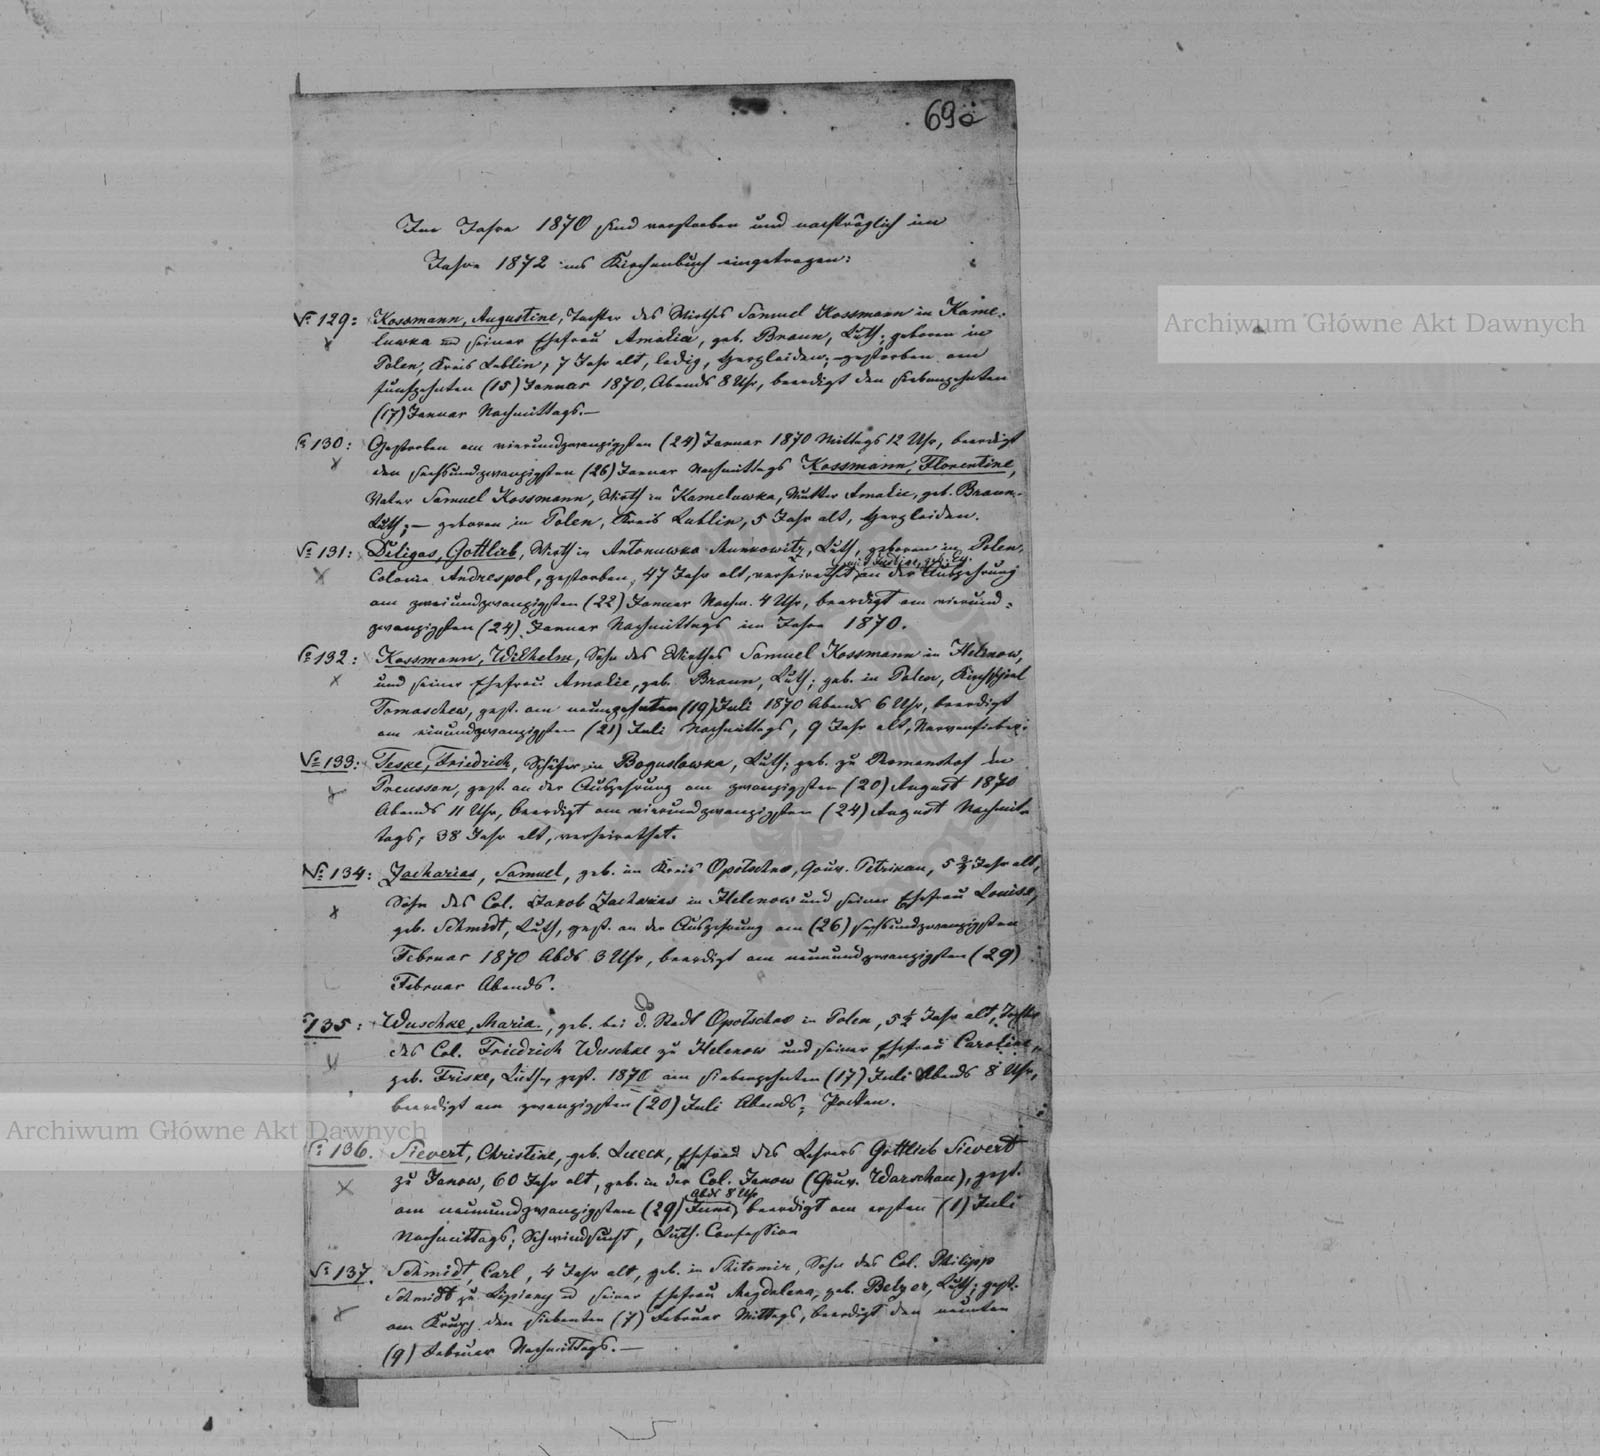 69a
Im Jahre 1870 sind verstorben und nachträglich im
Jahre 1872 ins Kirchenbuch eingetragen:
№ 129: Kossmann, Augustine, Tochter des Wirthes Samuel Kossmann in Kame-
luwka und seiner Ehefrau Amalia, geb. Braun, Luth; geboren in
Polen, Kreis Lublin, 7 Jahr alt, ledig, Herzleiden; gestorben am
funfzehnten (15) Januar 1870, Abends 8 Uhr, beerdigt den siebenzehnten
(17) Januar Nachmittags.—
№ 130: Gestorben am vierundzwanzigsten (24) Januar 1870 Mittags 12 Uhr, beerdigt
den sechsundzwanzigsten (26) Januar Nachmittags Kossmann, Florentine,
Vater Samuel Kossmann, Wirth in Kameluwka, Mutter Amalie, geb. Braun.
Luth; — geboren in Polen, Kreis Lublin, 5 Jahr alt, Herzleiden.
№ 131: Diligas, Gottlieb, Wirth in Antonuwka Munkowitz, Luth, geboren in Polen,
Colonie Andrespol, gestorben, 47 Jahr alt, verheirathet an der Auszehrung
am zweiundzwanzigsten (22) Januar Nachm. 4 Uhr, beerdigt am vierund-
zwanzigsten (24) Januar Nachmittags im Jahre 1870.
№ 132: Kossmann, Wilhelm, Sohn des Wirthes Samuel Kossmann in Helenow,
und seiner Ehefrau Amalie, geb. Braun, Luth; geb. in Polen, Kirchspiel
Tomaschew, gest. am neunzehnten (19) Juli 1870 Abends 6 Uhr, beerdigt
am einundzwanzigsten (21) Juli Nachmittags, 9 Jahr alt, Nervenfieber.
№ 133: Teske, Friedrich, Schäfer in Boguslowka, Luth; geb. zu Romanshof in
Preussen, gest. an der Auszehrung am zwanzigsten (20) August 1870
Abends 11 Uhr, beerdigt am vierundzwanzigsten (24) August Nachmit-
tags, 38 Jahr alt, verheirathet.
№ 134: Zacharias, Samuel, geb. im Kreis Opotschno, Gouv. Petrikau, 5 ¾ Jahr alt,
Sohn des Col. Jakob Zacharias in Helenow und seiner Ehefrau Louise,
geb. Schmidt, Luth, gest. an der Auszehrung am (26) sechsundzwanzigsten
Februar 1870 Abds 3 Uhr, beerdigt am neunundzwanzigsten (29)
Februar Abends.
135: Wuschke, Maria, geb. bei d. Stadt Opotschno in Polen, 5 ½ Jahr alt, Tochter
des Col. Friedrich Wuschke zu Helenow und seiner Ehefrau Caroline,
geb. Friske, Luth, gest. 1870 am siebenzehnten (17) Juli Abends 8 Uhr,
beerdigt am zwanzigsten (20) Juli Abends; Pocken.
№ 136. Sievert, Christine, geb. Lueck, Ehefrau des Lehrers Gottlieb Sievert
zu Janow, 60 Jahr alt, geb. in der Col. Janow (Gouv. Warschau), gest.
Abds 8 Uhr
am neunundzwanzigsten (29) Juni, beerdigt am ersten (1) Juli
Nachmittags; Schwindsucht, Luth. Confession
№ 137. Schmidt, Carl, 4 Jahr alt, geb. in Shitomir, Sohn des Col. Philipp
Schmidt zu Lipiany und seiner Ehefrau Magdalena, geb. Belzer, Luth; gest.
am Krupp den siebenten (7) Februar Mittags, beerdigt den neunten
(9) Februar Nachmittags.—
Archiwum Główne Akt Dawnych
Archiwum Główne Akt Dawnych